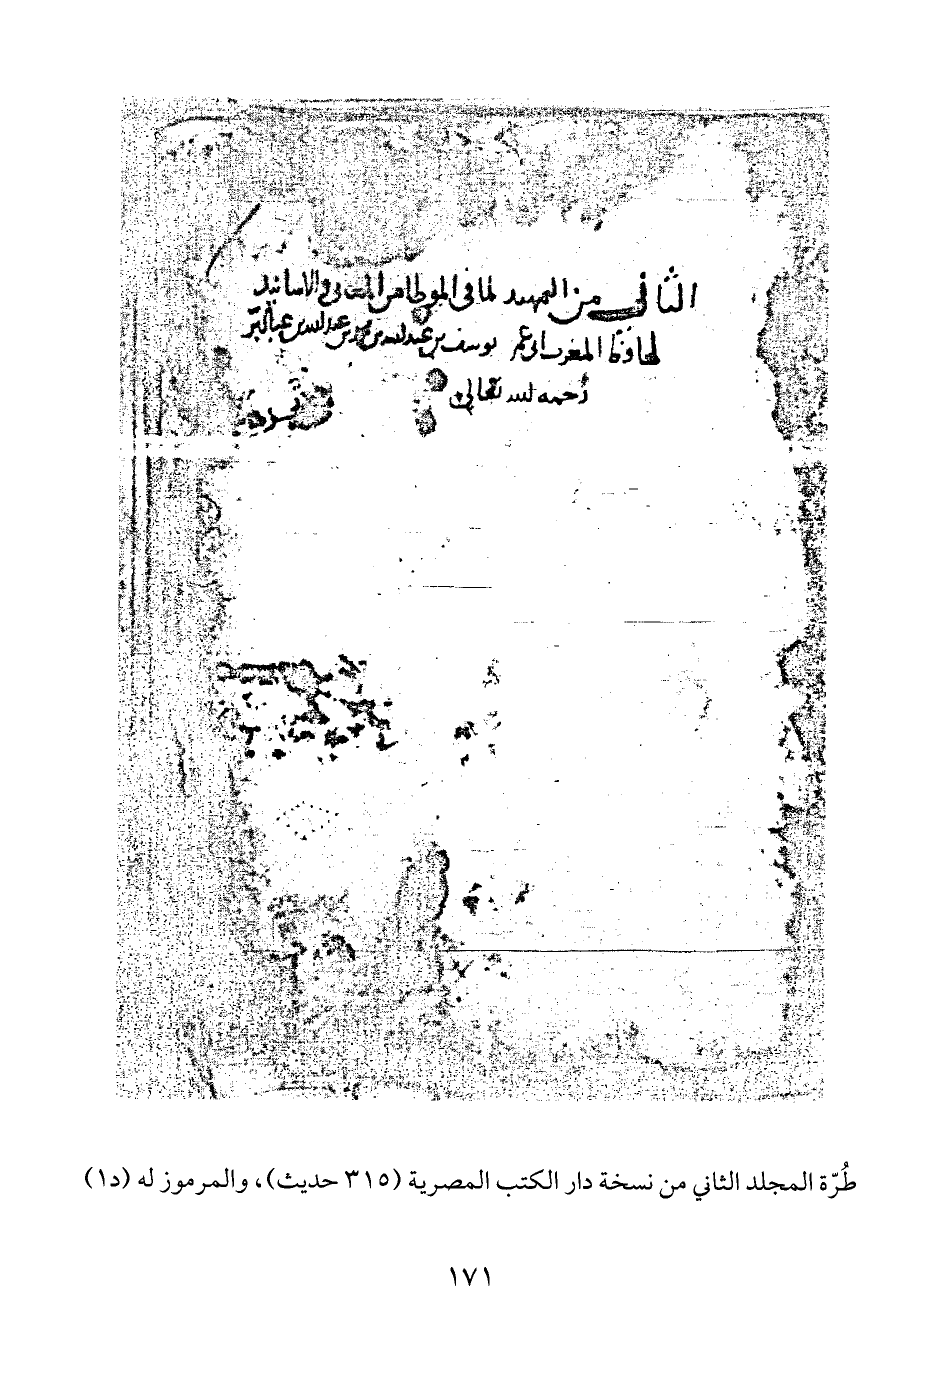 الثاني من التمهيد لما في الموطا من المعاني والاسانيد
لحافظ المغرب ابي عمر يوسف بن عبد الله بن محمد بن عبد الله بن عبد البر
رحمه الله تعالى
طُرّة المجلد الثاني من نسخة دار الكتب المصرية (٣١٥ حديث)، والمرموز له (د١)
١٧١